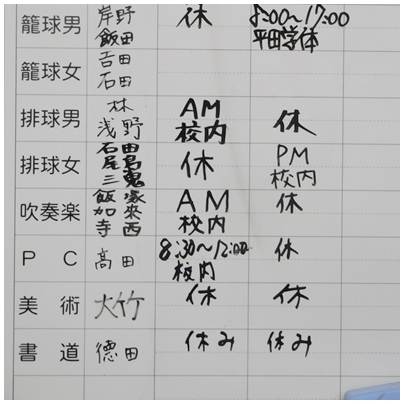 籠球男 岸野 休 8:00〜17:00
飯田 平田学体
籠球女 吉田
石田
排球男 林 AM 休
浅野 校内
排球女 石田 休 PM
尾島 校内
三鬼
吹奏楽 飯塚 AM 休
加來 校内
寺西
PC 高田 8:30〜12:00 休
校内
美術 大竹 休 休
書道 德田 休み 休み